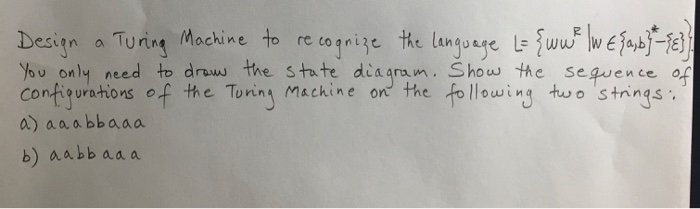 Design a Turing Machine to recognize the language L= {ww^R |w ∈{a,b}*-{ε}}.
You only need to draw the state diagram. Show the sequence of
configurations of the Turing Machine on the following two strings:
a) aaabbaaa
b) aabbaaa